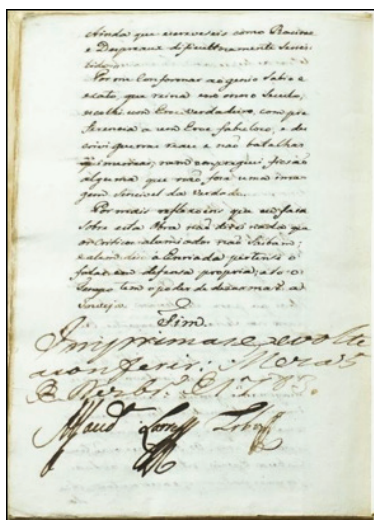 Ainda que escreveseis como Racine
e Despreaux dificultuzamente sereis
Por me conformar ao genio sabio e
exato, que reina neste nosso Seculo,
escolhi um Eroe verdadeiro, com pre
ferencia a um Eroe fabulozo, e des
crivi guerras reaes e não batalhas
quimericas, nem empreguei ficsão
alguma que não fora uma ima
gem sencivel da Verdade.
Por mais reflexoens que eu faça
sobre esta Obra não direi nada que
os Criticos alumiados não Saibaõ;
a Enriada pertence o
falar em defensa propria, e só o
tempo tem o poder de dezarmar a
Inveja.
Fim.
Imprimase e volte
a conferir. Meza 5
de 1783.